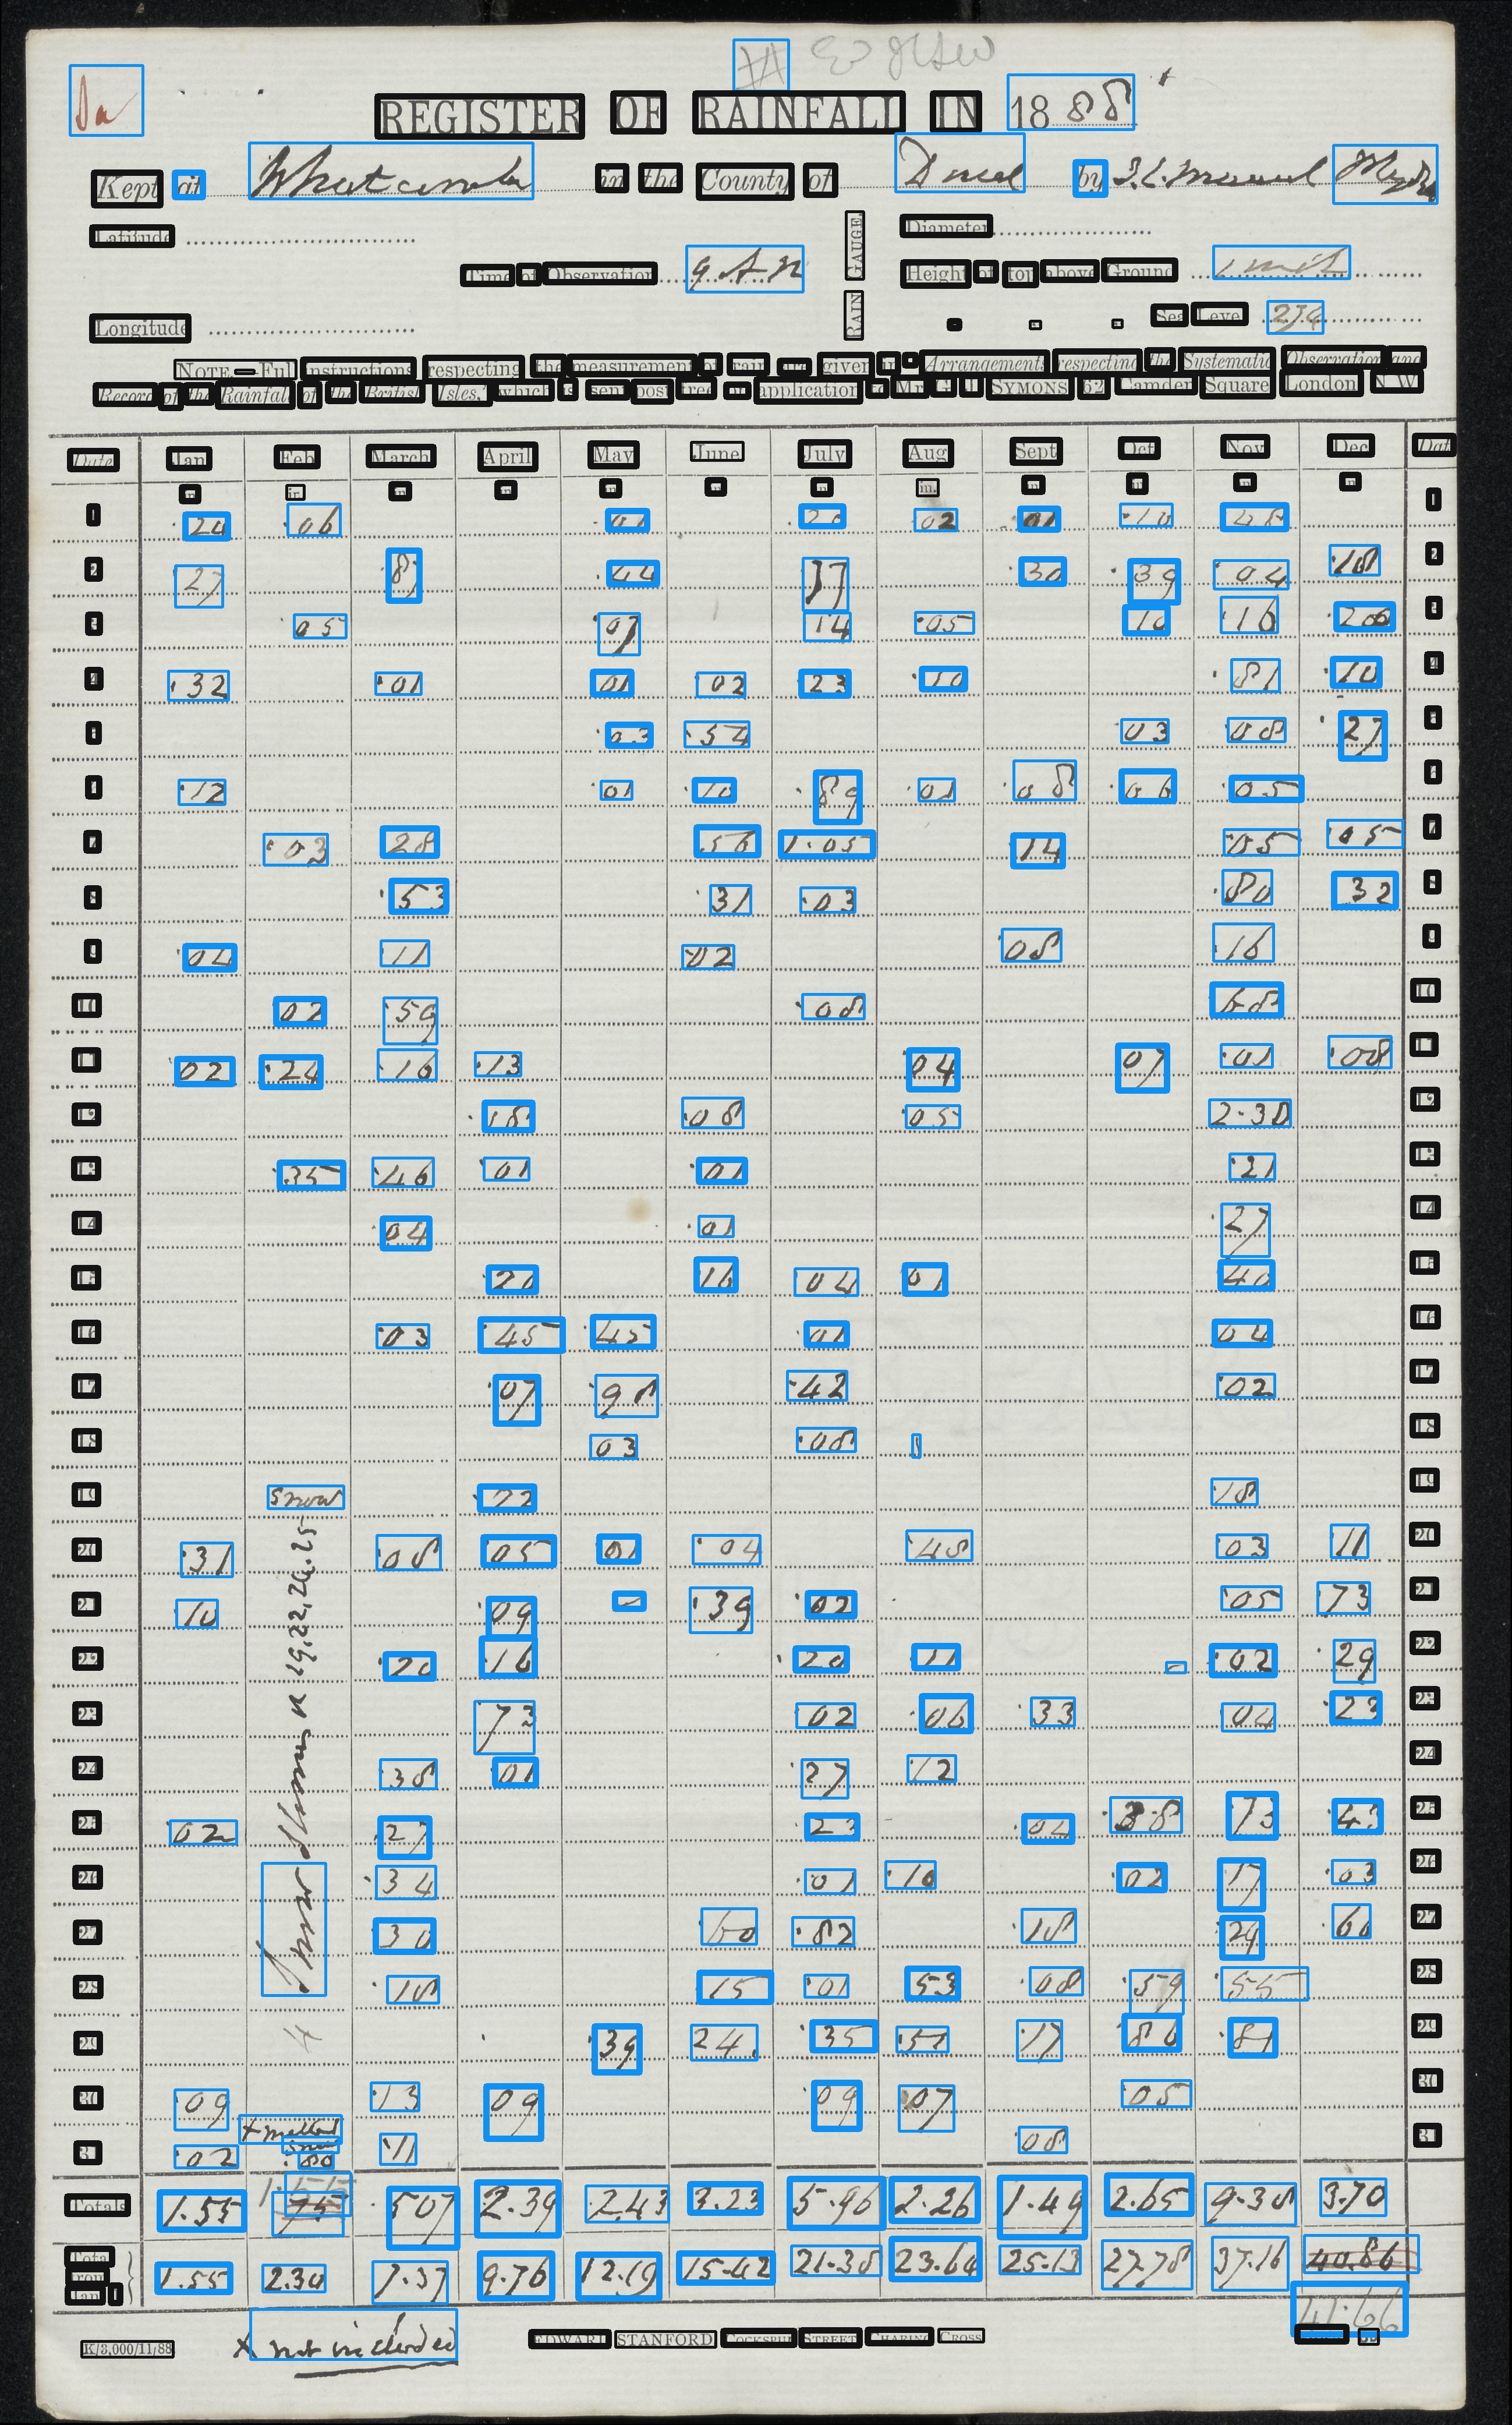 REGISTER OF RAINFALL IN 1888
Kept at Whatcombe in the County of Dorset by
Latitude
Diameter
RAIN GAUGE
Time of Observation 9 A.M
Height of top above Ground
Longitude
Sea Level 274
NOTE.—Full Instructions respecting the measurement of rain are given in "Arrangements respecting the Systematic Observation and
Record of the Rainfall of the British Isles," which is sent post free on application to Mr. G. J. SYMONS, 62, Camden Square, London, N.W.
Date Jan. Feb. March April May June July Aug. Sept. Oct. Nov. Dec. Date
in. in. in. in. in. in. in. in. in. in. in. in.
1 ·20 ·06 ·01 ·20 ·02 ·01 ·10 ·48 1
2 ·27 ·87 ·44 ·17 ·30 ·39 ·04 ·18 2
3 ·05 ·07 ·14 ·05 ·10 ·16 ·20 3
4 ·32 ·01 ·01 ·02 ·23 ·10 ·81 ·10 4
5 ·03 ·54 ·03 ·08 ·27 5
6 ·12 ·01 ·10 ·89 ·01 ·08 ·06 ·05 6
7 ·03 ·28 ·56 1·05 ·14 ·05 ·05 7
8 ·53 ·31 ·03 ·80 ·32 8
9 ·04 ·11 ·02 ·08 ·16 9
10 ·02 ·59 ·08 ·68 10
11 ·02 ·24 ·16 ·13 ·04 ·07 ·01 ·08 11
12 ·18 ·08 ·05 2·38 12
13 ·35 ·46 ·01 ·01 ·21 13
14 ·04 ·01 ·27 14
15 ·20 ·16 ·04 ·01 ·40 15
16 ·03 ·45 ·45 ·01 ·04 16
17 ·07 ·98 ·42 ·02 17
18 ·03 ·08 18
19 Snow ·22 ·18 19
20 ·31 ·08 ·05 ·01 ·04 ·48 ·03 ·11 20
21 ·10 ·09 – ·39 ·02 ·05 ·73 21
22 ·20 ·16 ·20 ·11 – ·02 ·29 22
23 ·73 ·02 ·06 ·33 ·04 ·23 23
24 ·38 ·01 ·27 ·12 24
25 ·02 ·27 ·23 ·04 ·38 ·73 ·43 25
26 ·34 ·01 ·10 ·02 ·17 ·03 26
27 ·30 ·60 ·82 ·18 ·24 ·60 27
28 ·18 ·15 ·01 ·53 ·08 ·59 ·55 28
29 ·39 ·24 ·35 ·51 ·17 ·86 ·81 29
30 ·09 ·13 ·09 ·09 ·07 ·05 30
Snow Storms 19, 22, 24, 25
x melted
snow
31 ·02 ·80 ·11 ·08 31
1.55
Totals 1.55 75 5·07 2.39 2.43 3.23 5.96 2.26 1.49 2.65 9.38 3.70
Total from Jan. 1 1.55 2.30 7.37 9.76 12.19 15.42 21.38 23.64 25.13 27.78 37.16 40.86
41.66
x not included
K/3,000/11/88
EDWARD STANFORD, COCKSPUR STREET, CHARING CROSS